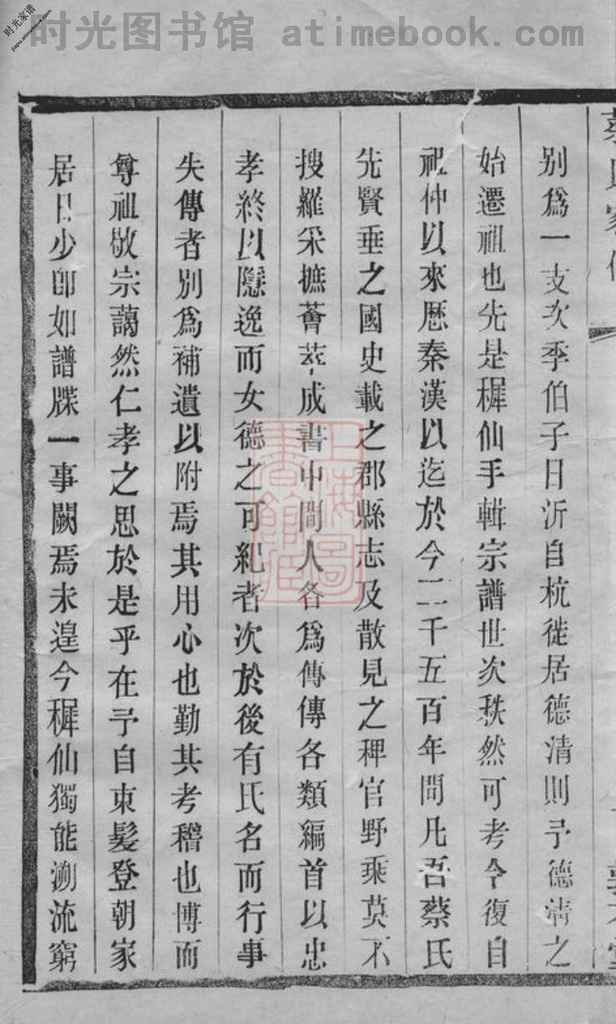 时光图书馆 atimebook.com
时光家谱
别為一支次季伯子日沂自杭徙居德清則予德清之
始遷祖也先是穉仙手輯宗譜世次秩然可考今復自
祖仲以來歷秦漢以迄於今二千五百年間凡吾蔡氏
先賢垂之國史載之郡縣志及散見之稗官野乘莫不
搜羅采摭薈萃成書中間人各為傳傳各類編首以忠
孝終以隱逸而女德之可紀者次於後有氏名而行事
失傳者別為補遺以附焉其用心也勤其考稽也博而
尊祖敬宗藹然仁孝之思於是乎在予自束髮登朝家
居日少即如譜牒一事闕焉未遑今穉仙獨能溯流窮